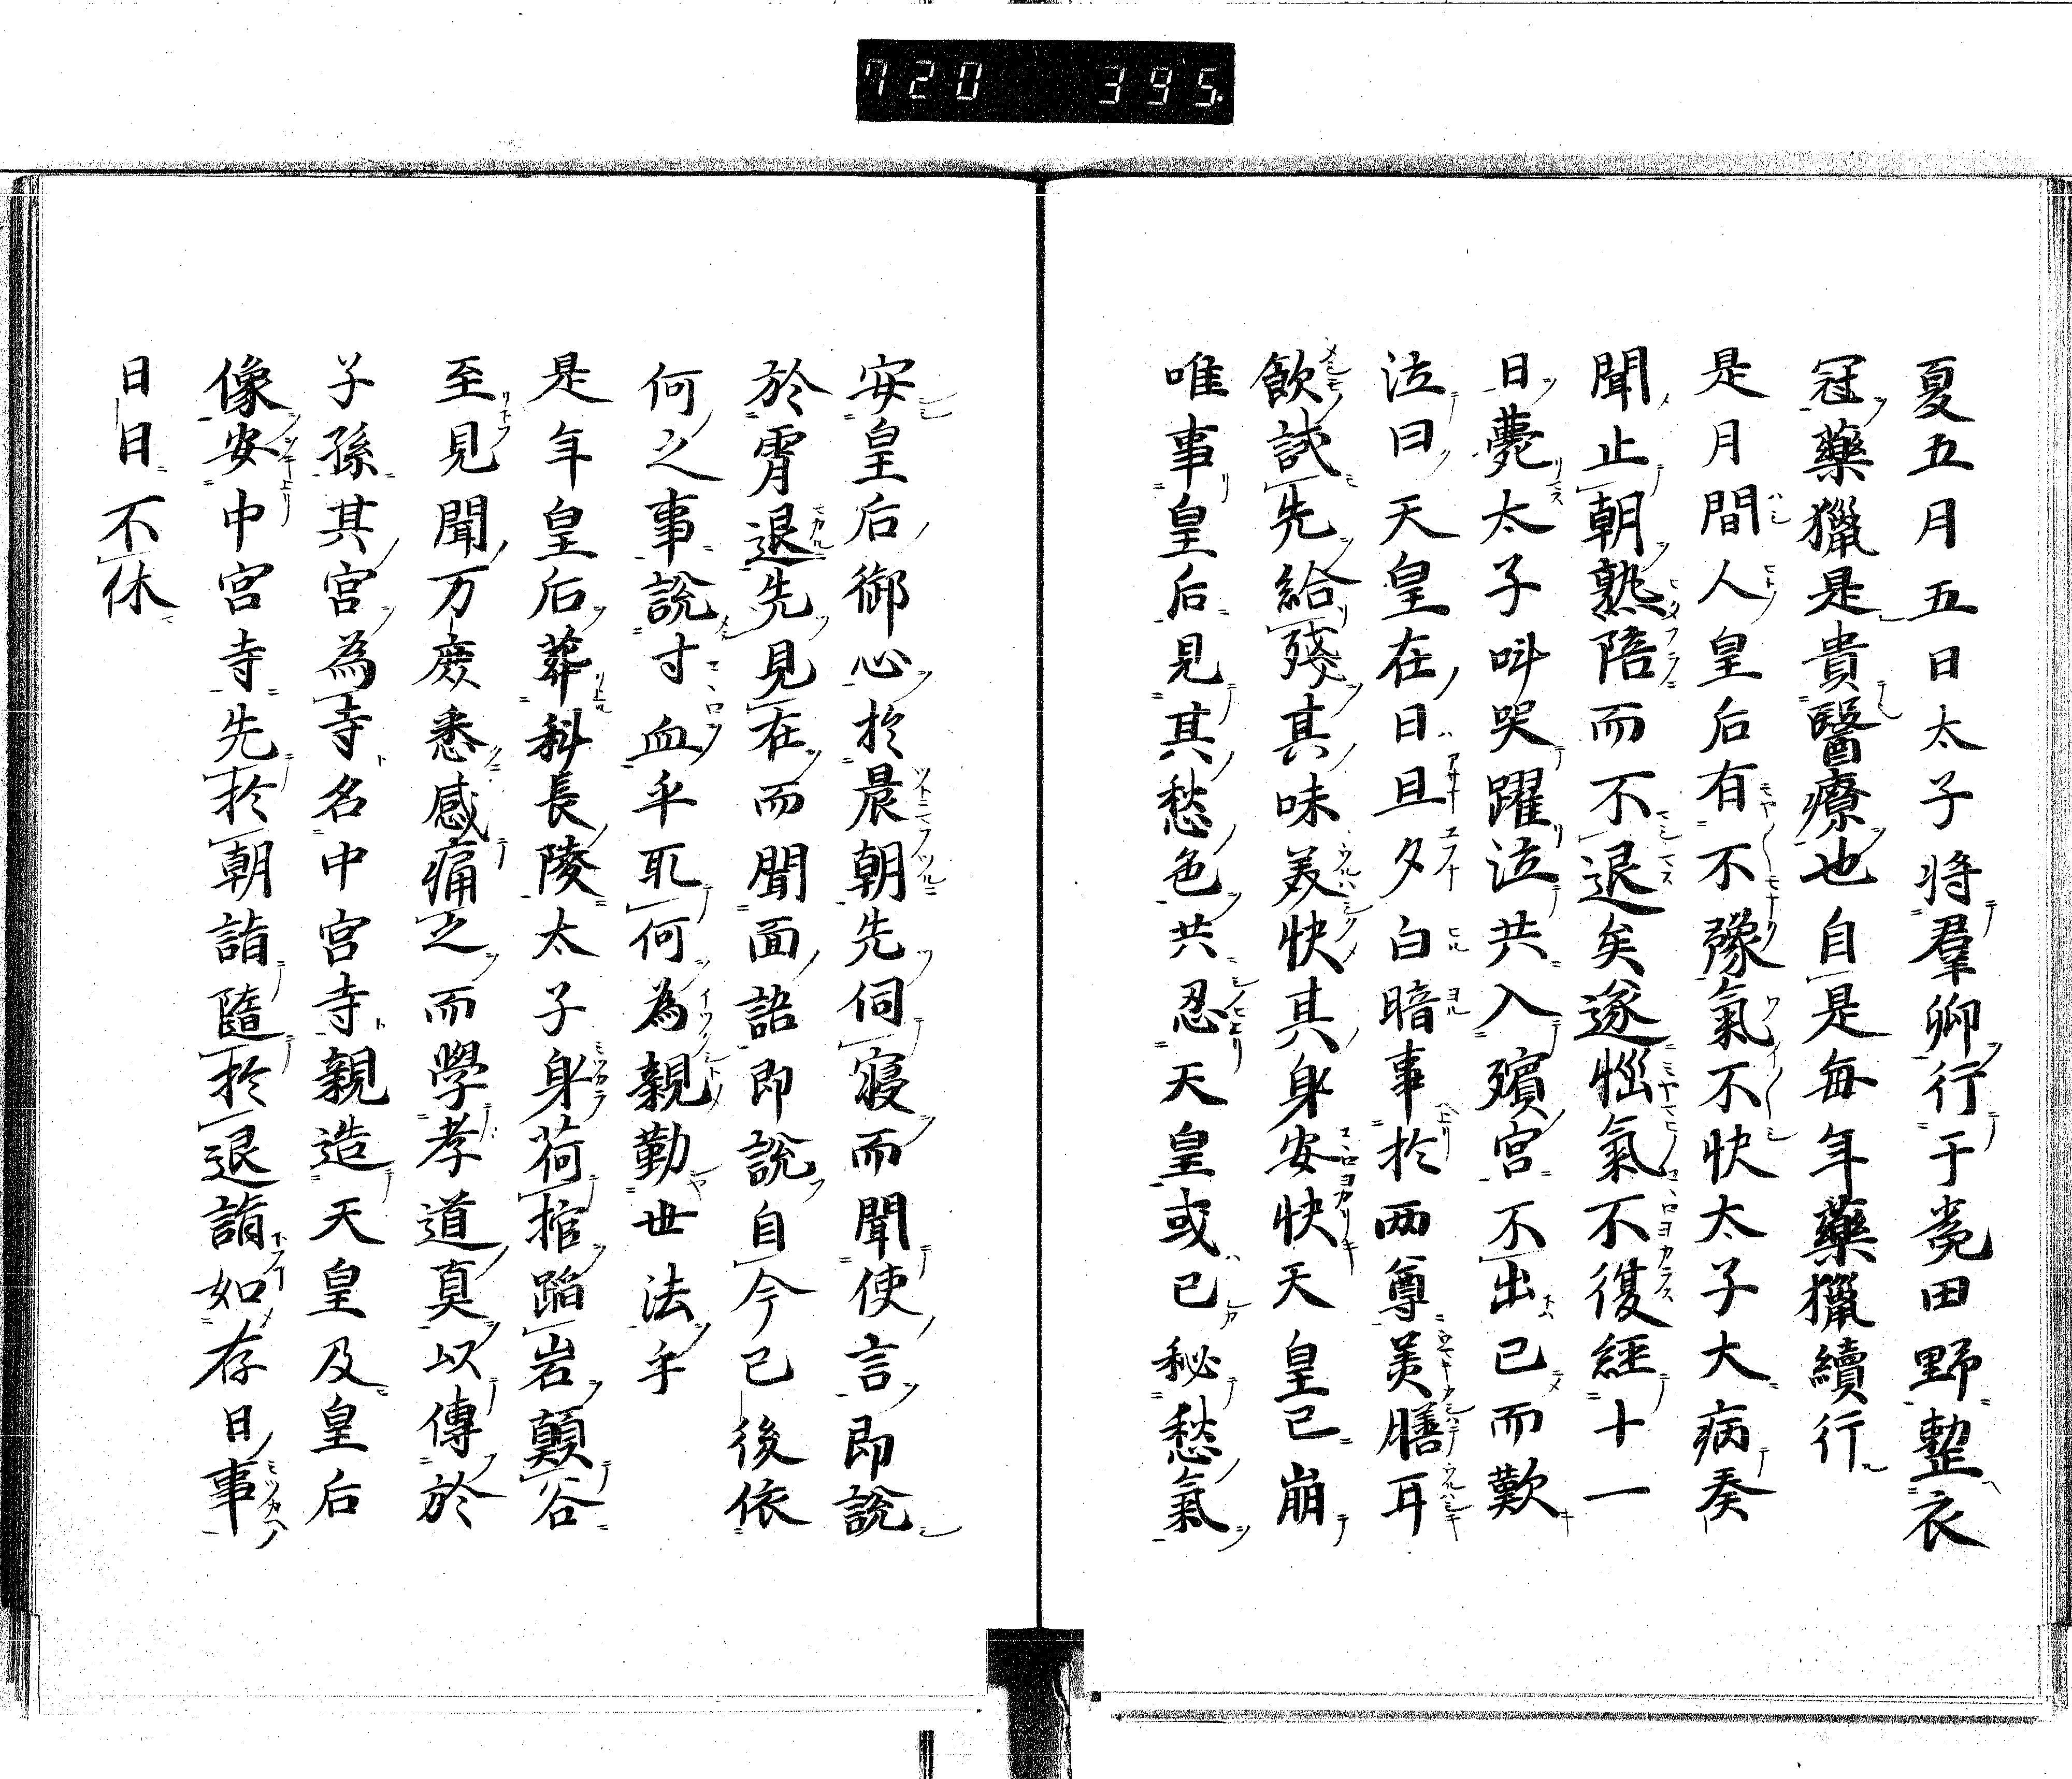 720 395.
夏五月五日太子将羣卿行于莵田野整衣
冠藥獵是貴醫療也自是毎年藥獵續行
是月間人皇后有不豫氣不快太子大病奏
聞止朝熟陪而不退矣遂惱氣不復經十一
日薨太子呌哭躍泣共入殯宮不出已而歎
泣曰天皇在日旦夕白暗事於兩尊美膳耳
飲試先給殘其味美快其身安快天皇已崩
唯事皇后見其愁色共忍天皇或已秘愁氣
安皇后御心於晨朝先伺寢而聞使言即說
於霄退先見在而聞面語即說自今已後依
何之事說寸血乎耴何為親勤世法乎
是年皇后葬科長陵太子身荷棺蹈岩顛谷
至見聞万庶悉感痛之而學孝道真以傳於
子孫其宮為寺名中宮寺親造天皇及皇后
像安中宮寺先於朝詣隨於退詣如存日事
日日不休